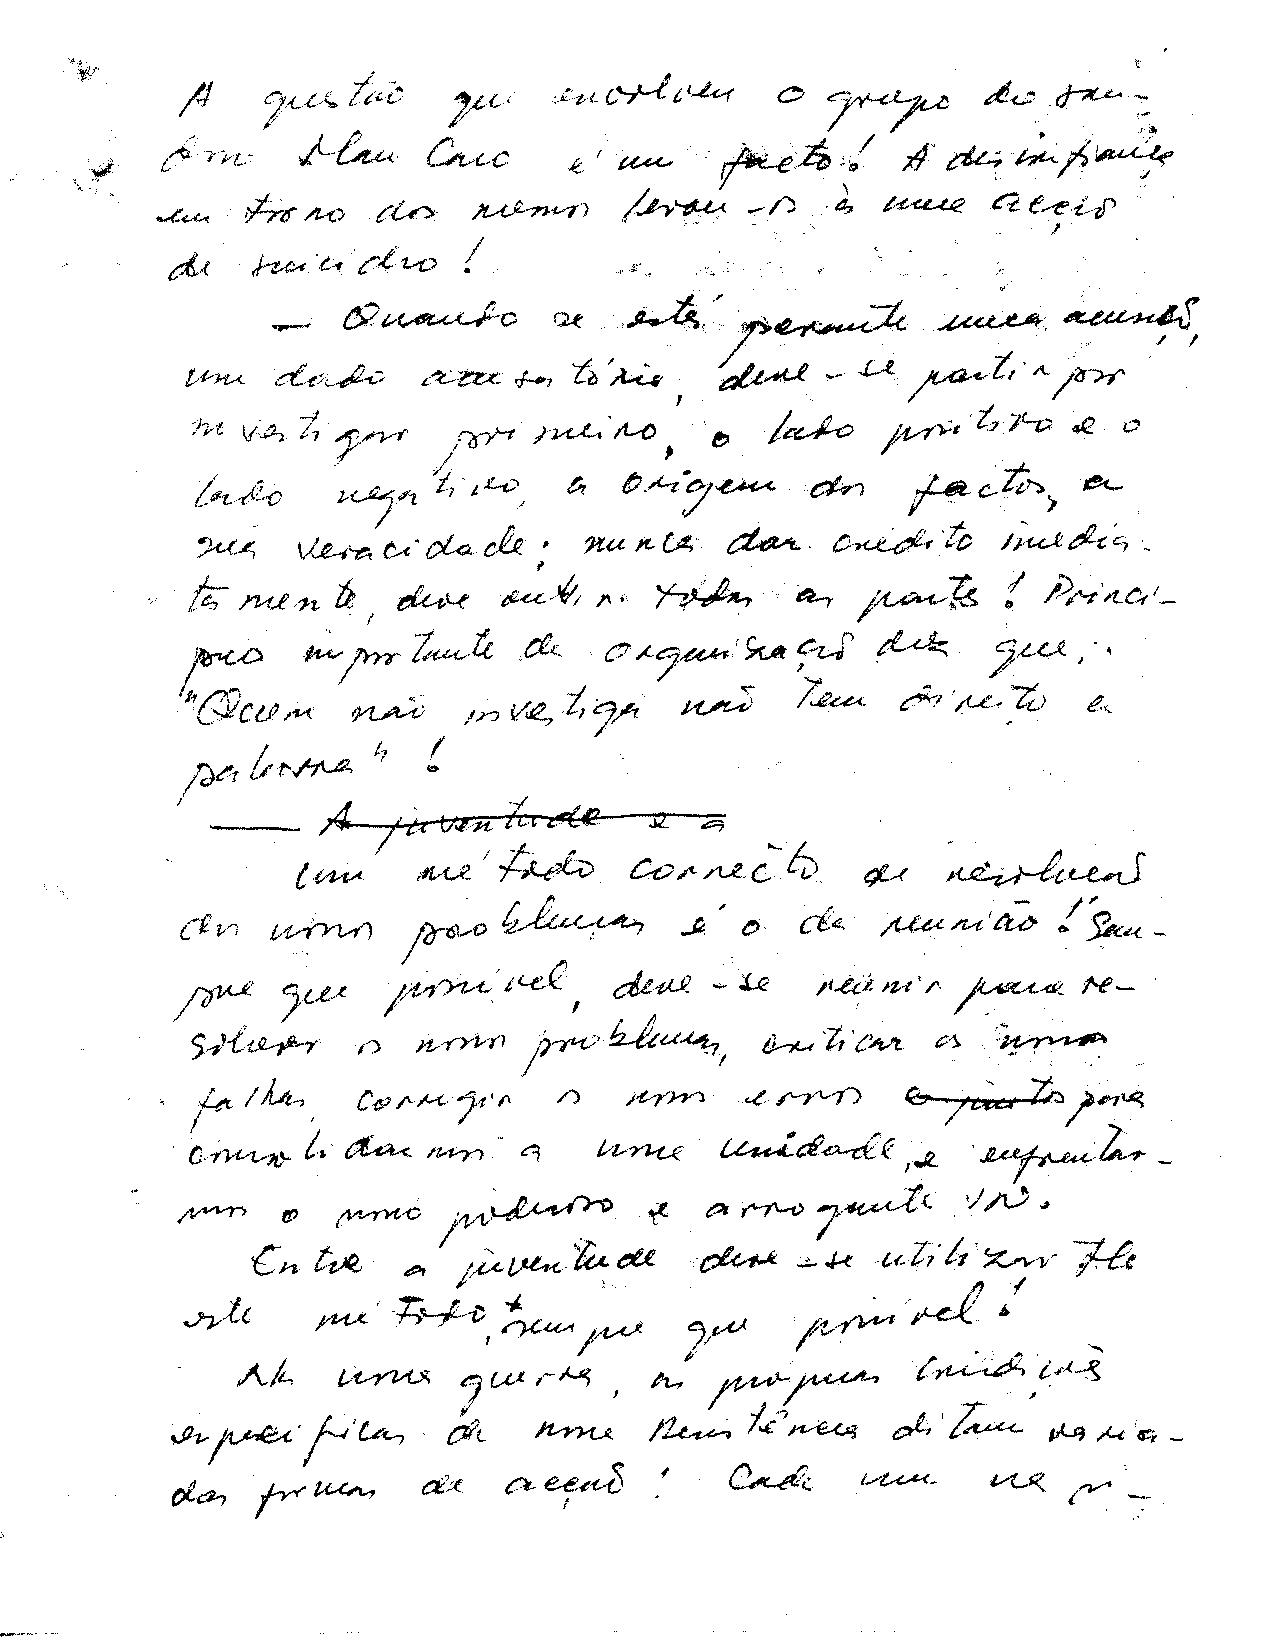 A questão que envolveu o grupo do sau-
doso Mau Caro é um facto! A desconfiança
em torno dos mesmos levou-os à uma acção
de suicidio!
— Quando se está perante uma acusação,
um dado acusatório, deve-se partir por
investigar primeiro, o lado positivo e o
lado negativo, a origem dos factos, a
sua veracidade; nunca dar crédito imedia-
tamente, deve ouvir todas as partes! Princi-
pio importante de organização diz que;
"Quem não investiga não tem direito a
palavra"!
— A juventude e a
Um método correcto de resolução
dos nossos problemas é o da reunião! Sem-
pre que possível, deve-se reunir para re-
solver os nossos problemas, criticar as nossas
falhas, corrigir os nossos erros e juntos para
consolidarmos a nossa unidade, e enfrentar-
mos o nosso poderoso e arrogante
Entre a juventude deve-se utilizar
este método, sempre que possível!
Na nossa guerra, as proprias condições
especificas da nossa Resistência ditam varia-
das formas de acção! Cada um na